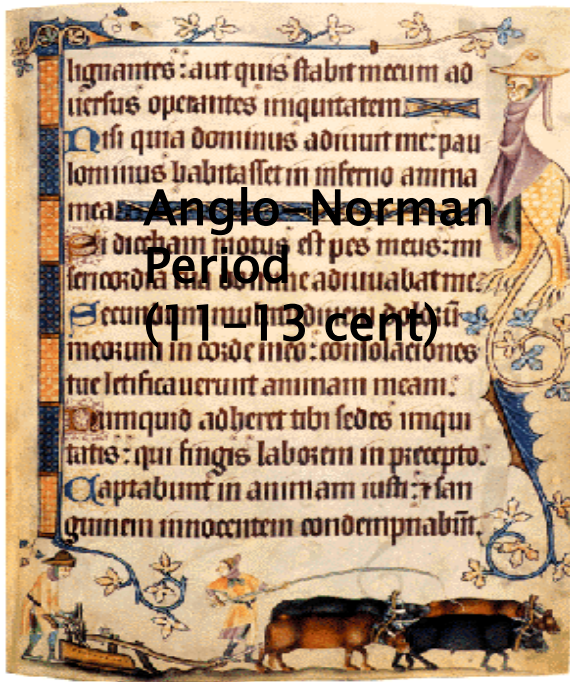 lignantes : aut quis stabit mecum ad
uersus operantes iniquitatem.
Nisi quia dominus adiuuit me: pau
lominus habitasset in inferno anima
mea.
Anglo-Norman
Si dicebam motus est pes meus: mi
Period
sericordia tua domine adiuuabat me.
Secundum dolorū
(11-13 cent)
meorum in corde meo : consolaciones
tue letificauerunt animam meam.
Numquid adheret tibi sedes iniqui
tatis : qui fingis laborem in precepto.
Captabunt in animam iusti: ⁊ san
guinem innocentem condempnabūt.